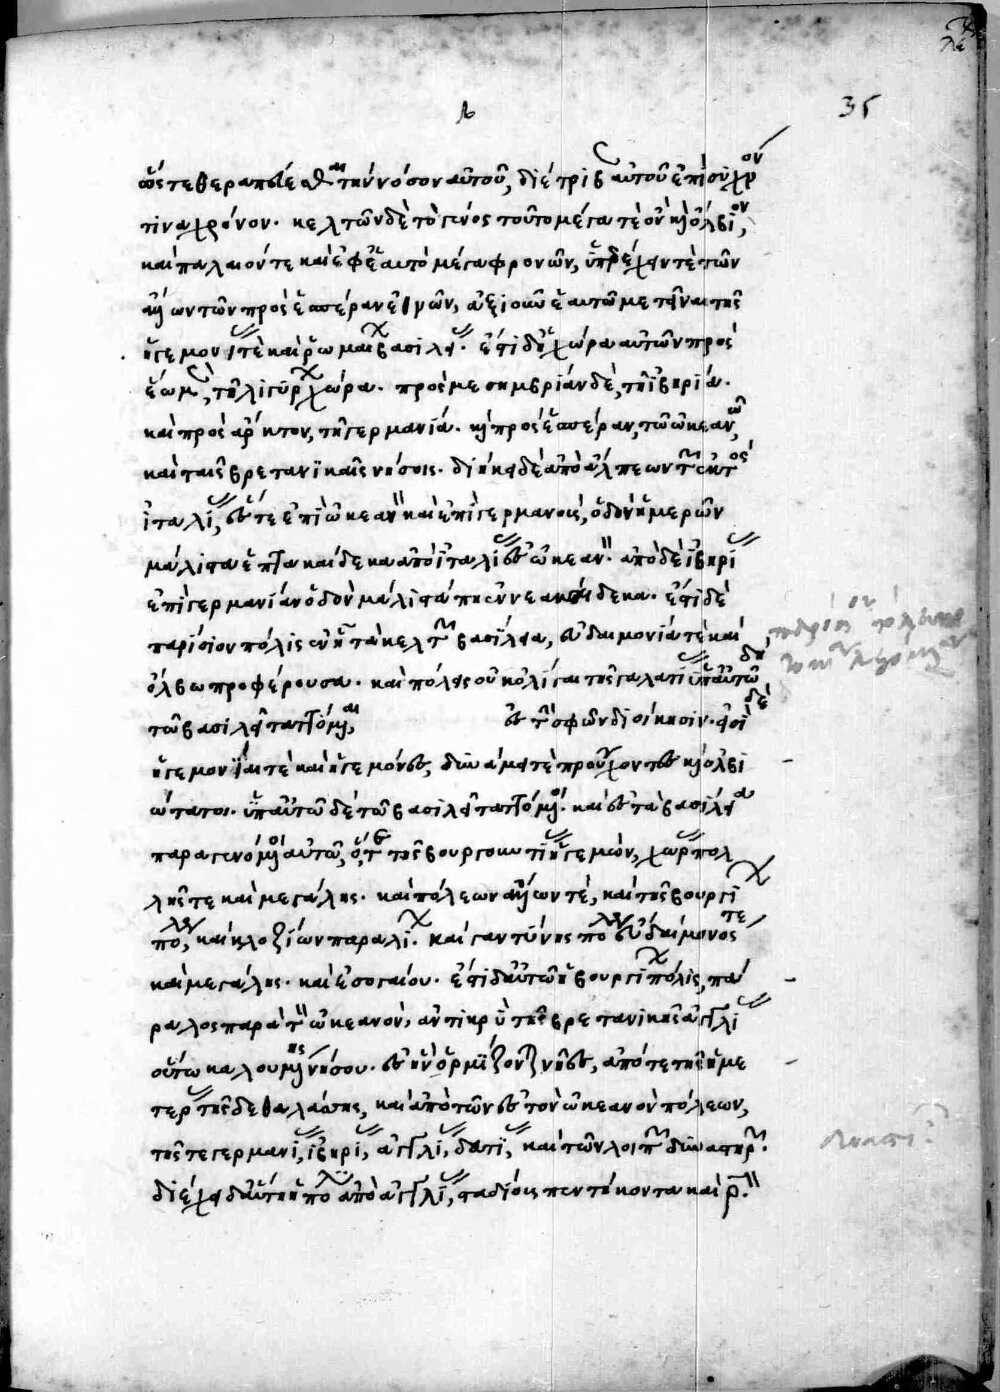 35
ὥστε θεραπεύεσθαι τὴν νόσον αὐτοῦ, διέτριβεν αὐτοῦ ἐπὶ συχνὸν
τινα χρόνον. κελτῶν δὲ τὸ γένος τοῦτο μέγα τὲ ὂν καὶ ὄλβιον,
καὶ παλαιόν τε καὶ ἐφ' ἑαυτὸ μέγα φρονῶν, ὑπερέχειν τὲ τῶν
ἄλλων τῶν πρὸς ἑσπέραν ἐθνῶν, ἀξιοῦν ἑαυτῶ μετεῖναι τῆς
ἡγεμονίας τὲ καὶ ῥωμαίων βασιλείας. ἔστι δ' ἡ χώρα αὐτῶν πρὸς
ἕω μὲν, τῆ λιγύρων χώρα. πρὸς μεσημβρίαν δὲ, τῆ ἰβηρία.
καὶ πρὸς ἄρκτον, τῆ γερμανία. καὶ πρὸς ἑσπέραν, τῶ ὠκεανῶ,
καὶ ταῖς βρετανϊκαῖς νήσοις. διήκει δὲ ἀπὸ ἄλπεων τῶν ἐντὸς
ἰταλίας, ἔστε ἐπὶ ὠκεανὸν καὶ ἐπὶ γερμανοὺς, ὁδὸν ἡμερῶν
μάλιστα ἑπτὰ καὶ δεκα ἀπὸ ἰταλίας ἐς ὠκεανόν. ἀπὸ δὲ ἰβηρίας
ἐπὶ γερμανίαν ὁδὸν μάλιστά πη ἐννεακαίδεκα. ἔστι δὲ
παρίσιον πόλις ἐν ἧ τὰ κελτῶν βασίλεια, εὐδαιμονία τὲ καὶ
ὄλβω προφέρουσα. καὶ πόλεις οὐκ ὀλίγαι τῆς γαλατίας ὑπ' αὐτῶ δὴ
τῶ βασιλεῖ ταττόμεναι ἐς τὴν σφῶν διοίκησιν. εἰσὶ δὲ
ἡγεμονίαι τὲ καὶ ἡγεμόνες, δυνάμει τὲ προὔχοντες καὶ ὀλβι
ώτατοι. ὑπ' αὐτῶ δὲ τῶ βασιλεῖ ταττόμενοι. καὶ ἐς τὰ βασίλεια
παραγινόμενοι αὐτῶ, ὅ,τε τῆς βουργουντίας ἡγεμὼν, χώρας πολ
λῆς τε καὶ μεγάλης. καὶ πόλεων ἄλλων τὲ, καὶ τῆς βουργίων
πόλεως, καὶ κλοζίων παραλίων. καὶ γαντύνης πόλεως εὐδαίμονός τε
καὶ μεγάλης. καὶ ἐσογαίου. ἔστι δ' αὐτῶν ἡ βουργίων πόλις, πά
ραλος παρὰ τὸν ὠκεανὸν, ἀντικρὺ τῆς βρετανικῆς ἀγγλίας
οὕτω καλουμένης νήσου. ἐς ἣν ὁρμίζονται νῆες, ἀπό τε τῆς ἡμε
τέρας τῆσδε θαλάσσης, καὶ ἀπὸ τῶν ἐς τὸν ὠκεανὸν πόλεων,
τῆς τε γερμανίας, ἰβηρίας, ἀγγλίας, δατίας, καὶ τῶν λοιπῶν δυναστειῶν.
διέχει δ' αὕτη ἡ πόλις ἀπὸ ἀγγλίας, σταδίους πεντήκοντα καὶ ρ.